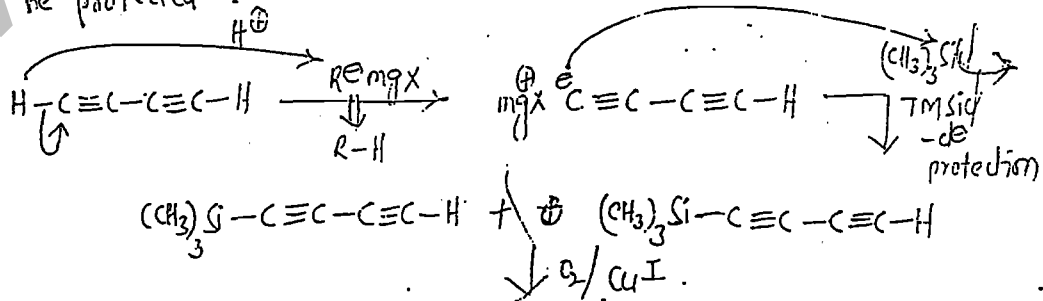 be protected
H⊕
H–C≡C–C≡C–H R⊖mgX R–H mgX⊕ ⊖C≡C–C≡C–H (CH₃)₃SiCl
TMSiCl
-Cl⊖
protection
(CH₃)₃Si–C≡C–C≡C–H + (CH₃)₃Si–C≡C–C≡C–H
O₂/CuI.